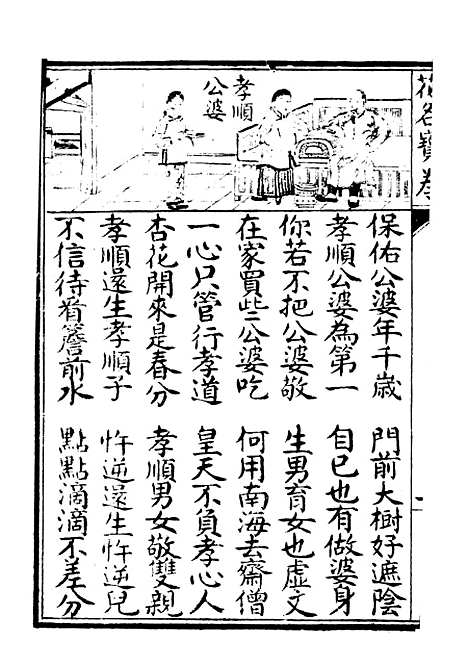 花名寶卷
孝順
公婆
保佑公婆年千歲 門前大樹好遮陰
孝順公婆為第一 自已也有做婆身
你若不把公婆敬 生男育女也虛文
在家買些公婆吃 何用南海去齋僧
一心只管行孝道 皇天不負孝心人
杏花開來是春分 孝順男女敬雙親
孝順還生孝順子 忤逆還生忤逆兒
不信待看簷前水 點點滴滴不差分